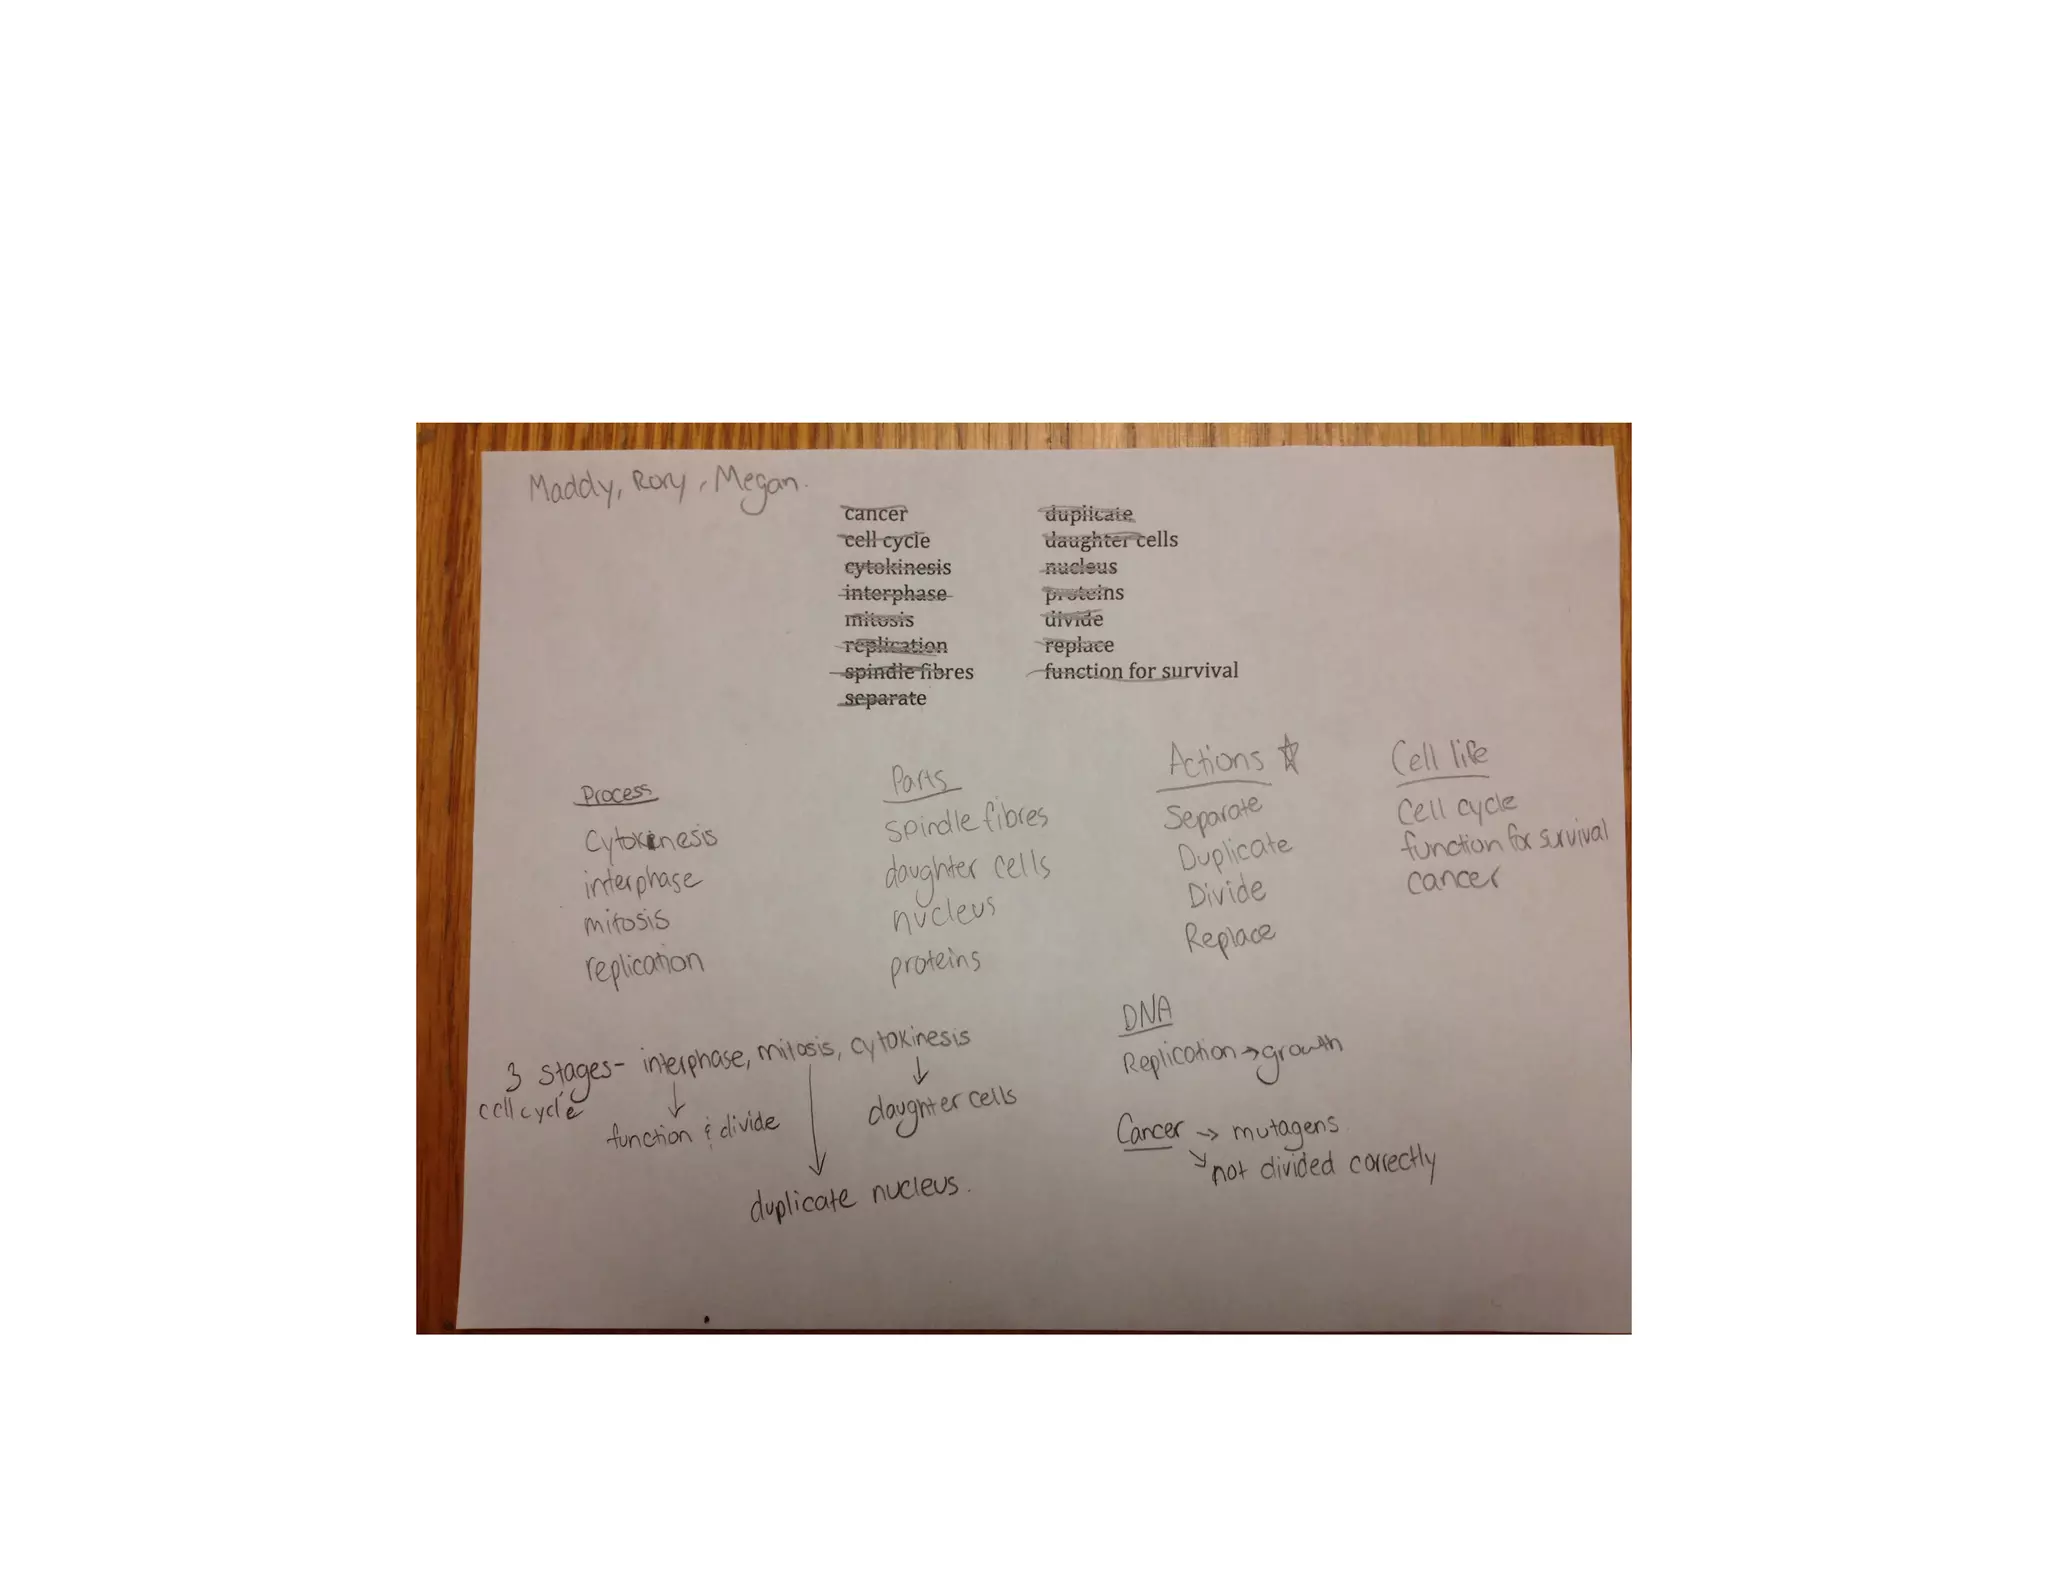 Maddy, Rory, Megan.
cancer
cell cycle
cytokinesis
interphase
mitosis
replication
spindle fibres
separate
duplicate
daughter cells
nucleus
proteins
divide
replace
function for survival
Process
Cytokinesis
interphase
mitosis
replication
Parts
spindle fibres
daughter cells
nucleus
proteins
Actions ☆
Separate
Duplicate
Divide
Replace
Cell life
Cell cycle
function for survival
cancer
3 stages- interphase, mitosis, cytokinesis
cell cycle
function & divide
daughter cells
duplicate nucleus.
DNA
Replication → growth
Cancer → mutagens.
↘ not divided correctly